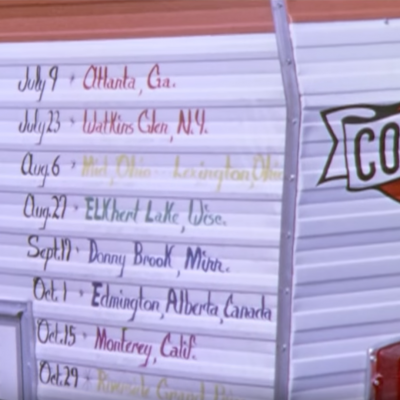 July 9 • Atlanta, Ga.
July 23 • Watkins Glen, N.Y.
Aug. 6 • Mid, Ohio - Lexington, Ohio
Aug. 27 • ELKhert Lake, Wisc.
Sept. 17 • Donny Brook, Minn.
Oct. 1 • Edmington, Alberta, Canada
Oct. 15 • Monterey, Calif.
Oct. 29 • Riverside Grand
CO